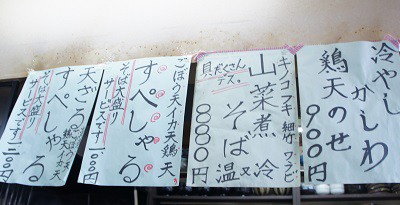 冷やしかしわ
鶏天のせ
900円
キノコフキ細竹ワラビ
山菜煮そば 温又冷
具だくさんデス。
880円
ごぼう天イカ天鶏天
すぺしゃる
そば大盛り
サービスです1100円
天ざる
すぺしゃる
そば大盛り
サービスです1200円